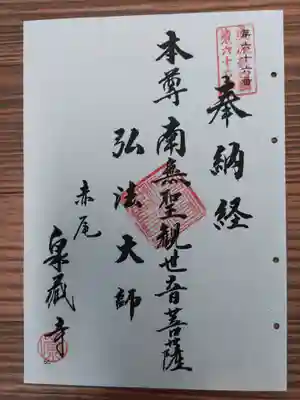 第六十六番
奉納経
本尊南無聖観世音菩薩
弘法大師
赤尾
泉蔵寺